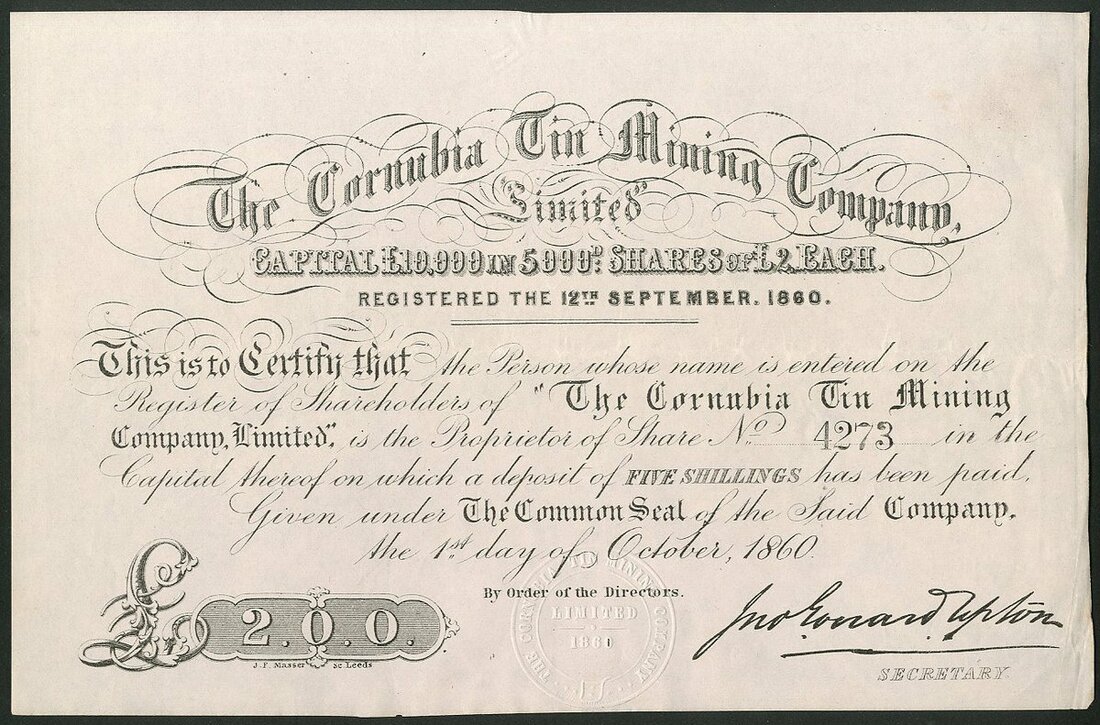 The Cornubia Tin Mining Company,
Limited
CAPITAL £10,000 IN 5000D. SHARES OF £2, EACH.
REGISTERED THE 12TH SEPTEMBER, 1860.
This is to Certify that the Person whose name is entered on the
Register of Shareholders of "The Cornubia Tin Mining
Company, Limited", is the Proprietor of Share No 4273 in the
Capital thereof on which a deposit of FIVE SHILLINGS has been paid.
Given under The Common Seal of the Said Company,
the 1st day of October, 1860.
By Order of the Directors.
THE CORNUBIA TIN MINING COMPANY
LIMITED
1860
£2.0.0.
J. F. Masser Sc Leeds
Upton
SECRETARY.